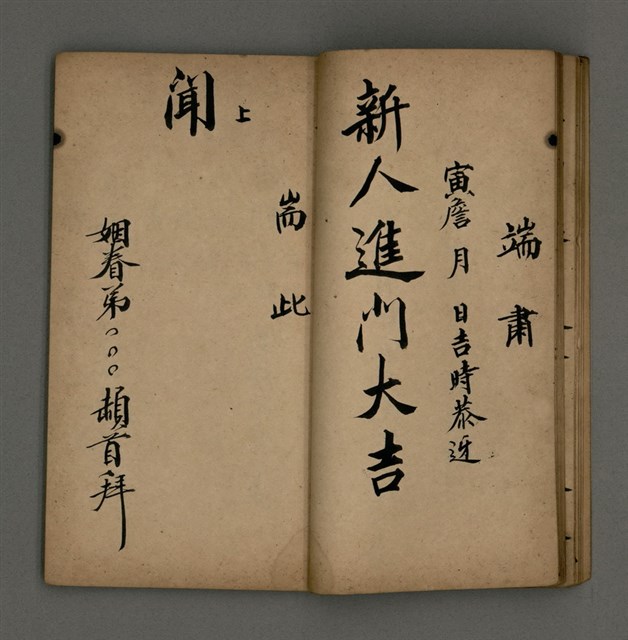 端肅
寅詹月 日吉時恭迓
新人進門大吉
耑此
上
聞
姻眷弟○○○頓首拜